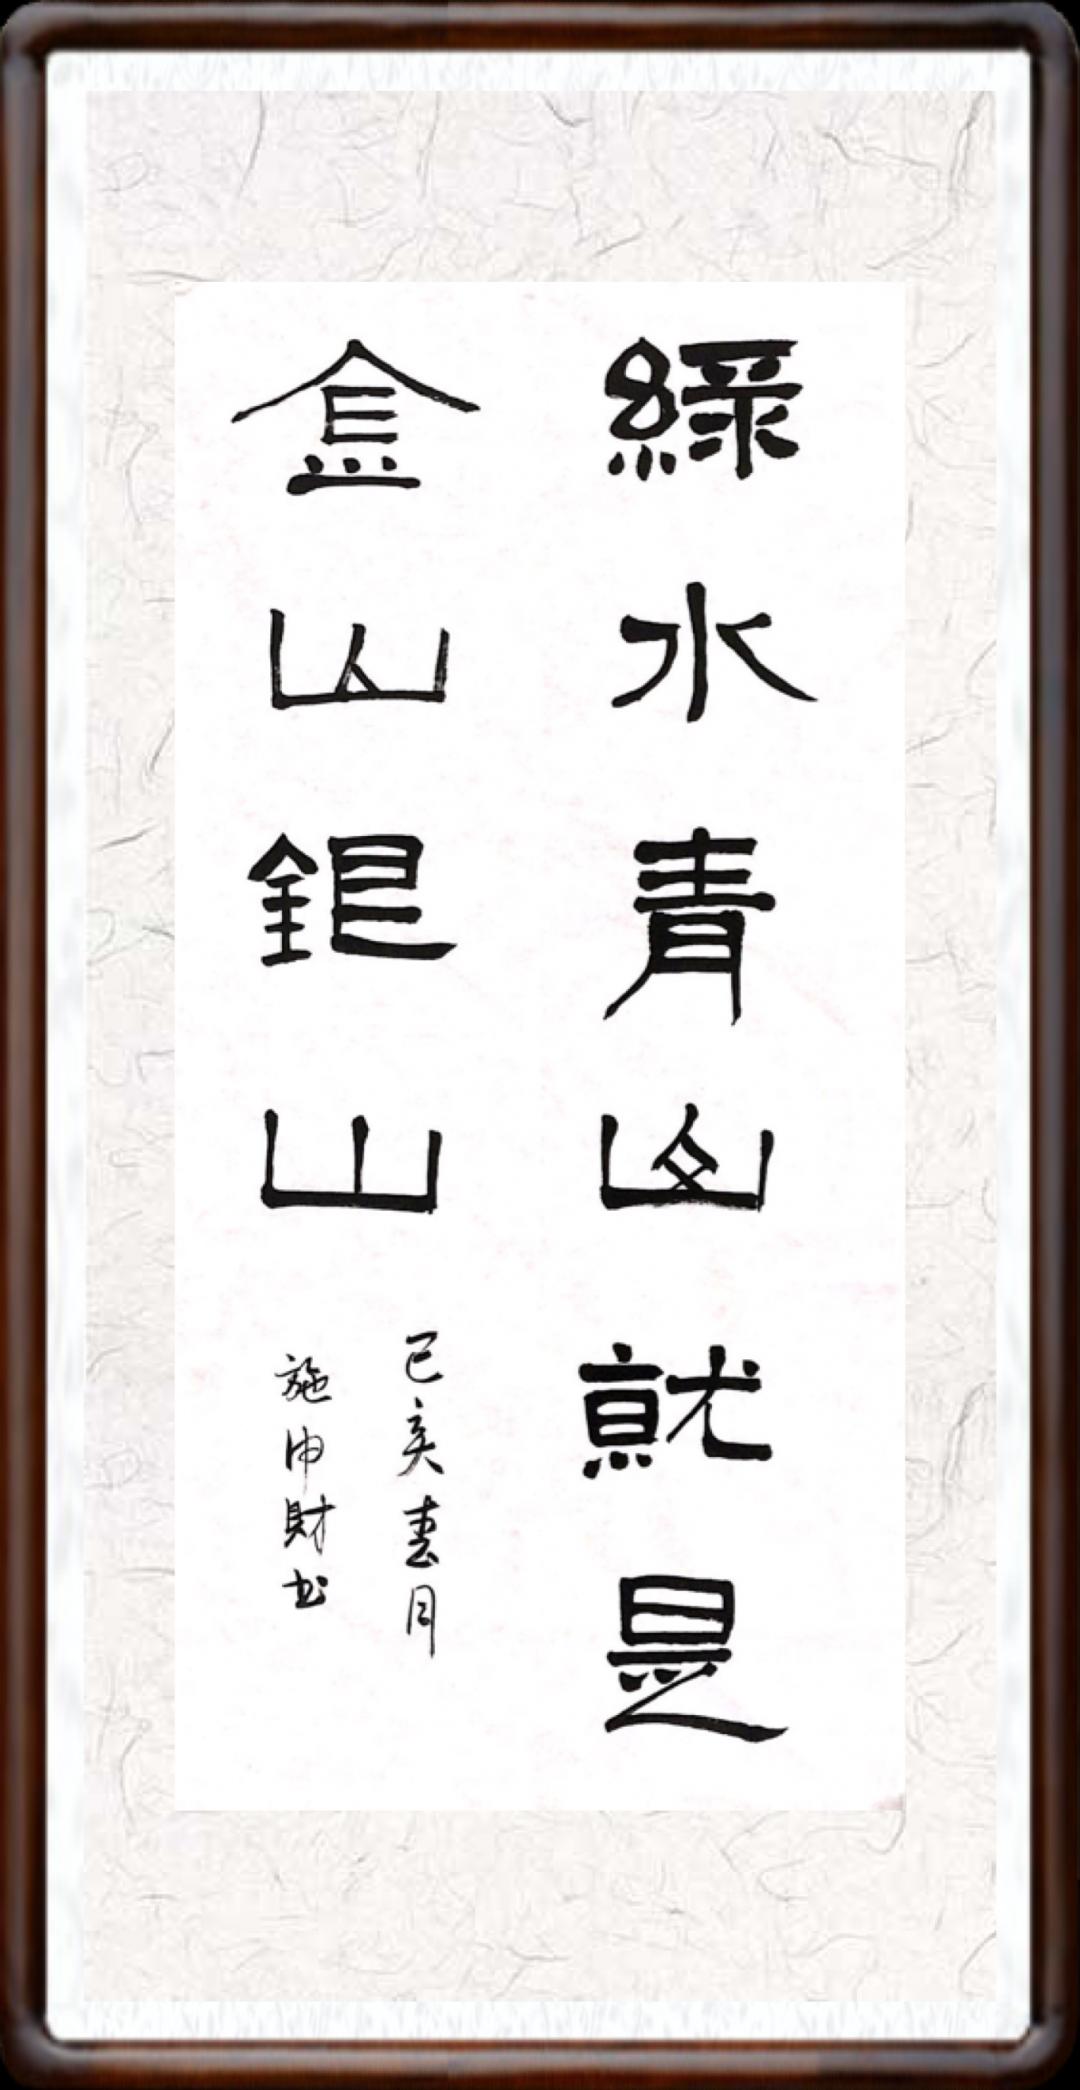 綠水青山就是
金山銀山
己亥春月
施申財书